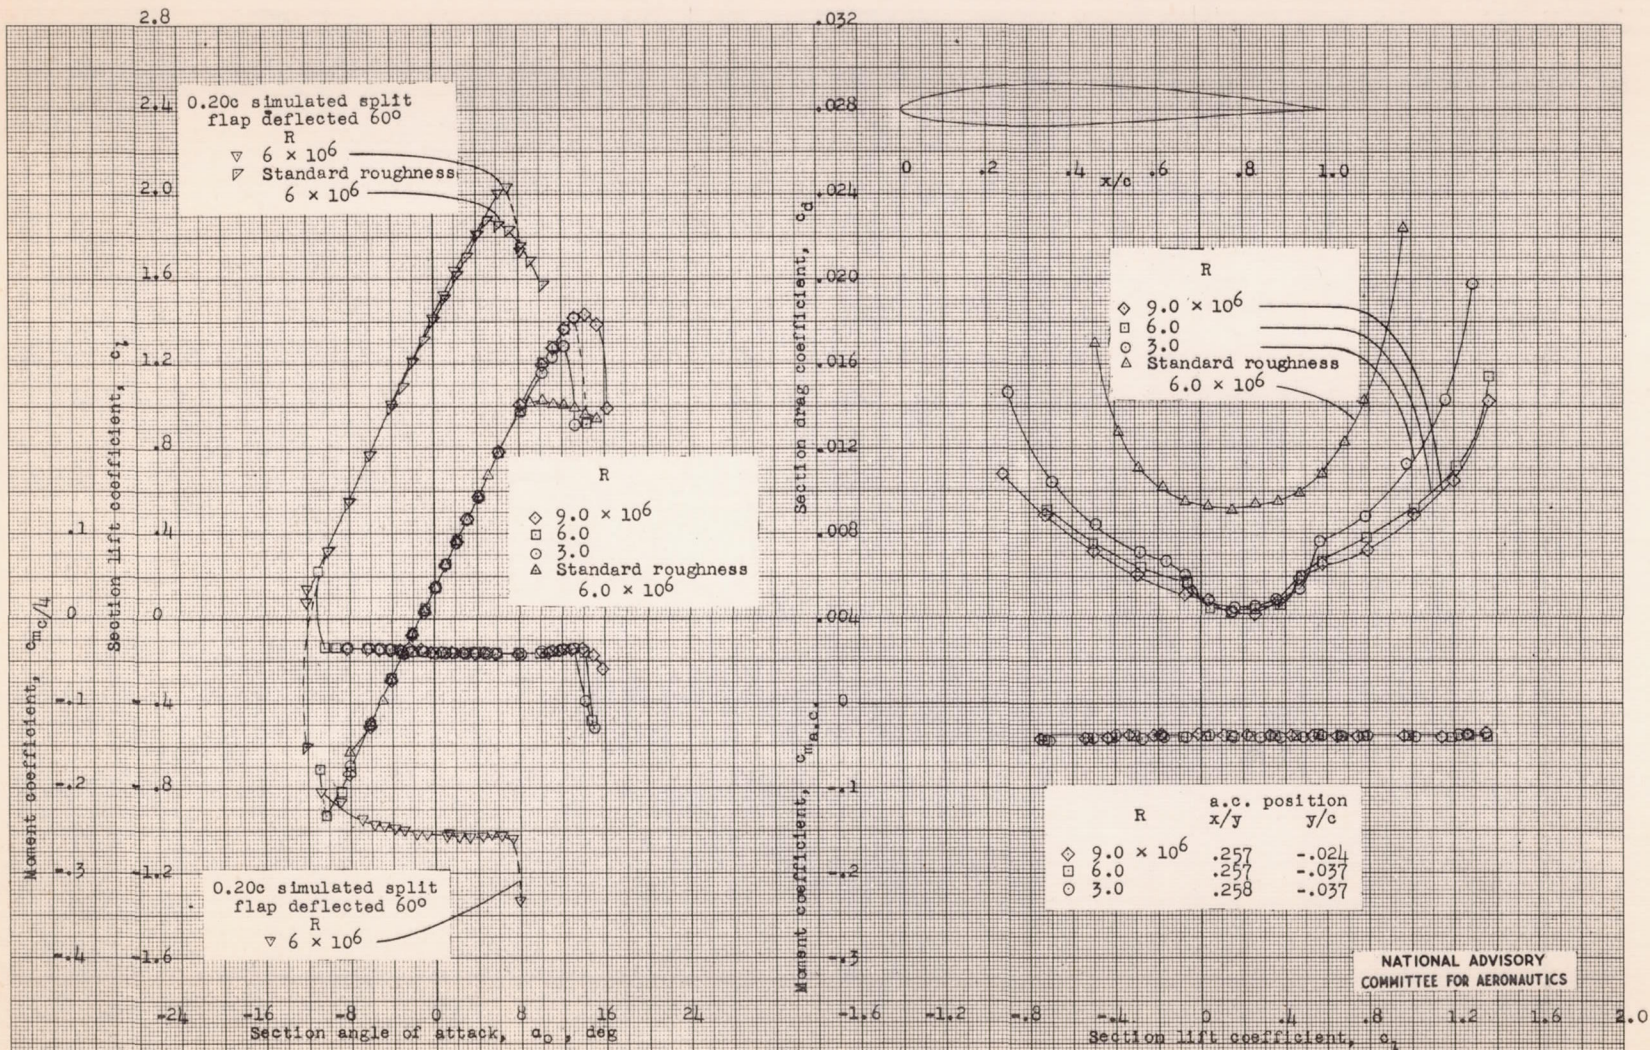 2.8
2.4
2.0
1.6
1.2
.8
.4
0
-.4
-.8
-1.2
-1.6
Section lift coefficient, c_l
.1
0
-.1
-.2
-.3
-.4
Moment coefficient, c_m_c/4
-24 -16 -8 0 8 16 24
Section angle of attack, α_0, deg
0.20c simulated split
flap deflected 60°
R
▽ 6 × 10^6
Standard roughness
6 × 10^6
R
◇ 9.0 × 10^6
□ 6.0
○ 3.0
△ Standard roughness
6.0 × 10^6
0.20c simulated split
flap deflected 60°
R
▽ 6 × 10^6
.032
.028
.024
.020
.016
.012
.008
.004
0
-.1
-.2
-.3
Section drag coefficient, c_d
Moment coefficient, c_m_a.c.
0 .2 .4 .6 .8 1.0
x/c
R
◇ 9.0 × 10^6
□ 6.0
○ 3.0
△ Standard roughness
6.0 × 10^6
a.c. position
R x/y y/c
◇ 9.0 × 10^6 .257 -.024
□ 6.0 .257 -.037
○ 3.0 .258 -.037
NATIONAL ADVISORY
COMMITTEE FOR AERONAUTICS
-1.6 -1.2 -.8 -.4 0 .4 .8 1.2 1.6 2.0
Section lift coefficient, c_l